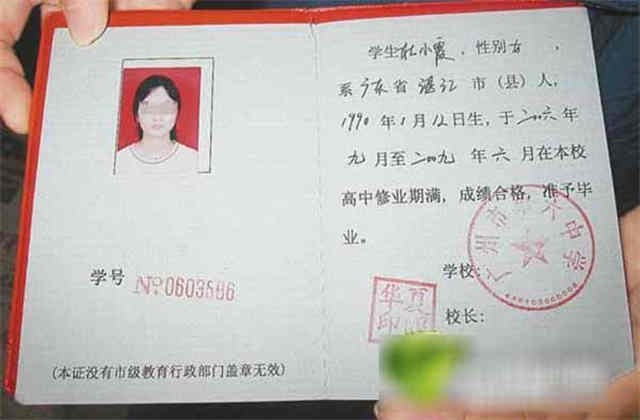 学号 №0603586
(本证没有市级教育行政部门盖章无效)
学生杜小霞，性别女，
系广东省湛江市（县）人，
1990年1月12日生，于二〇〇六年
九月至二〇〇九年六月在本校
高中修业期满，成绩合格，准予毕
业。
学校：
校长：
广州市 中学
华夏
印